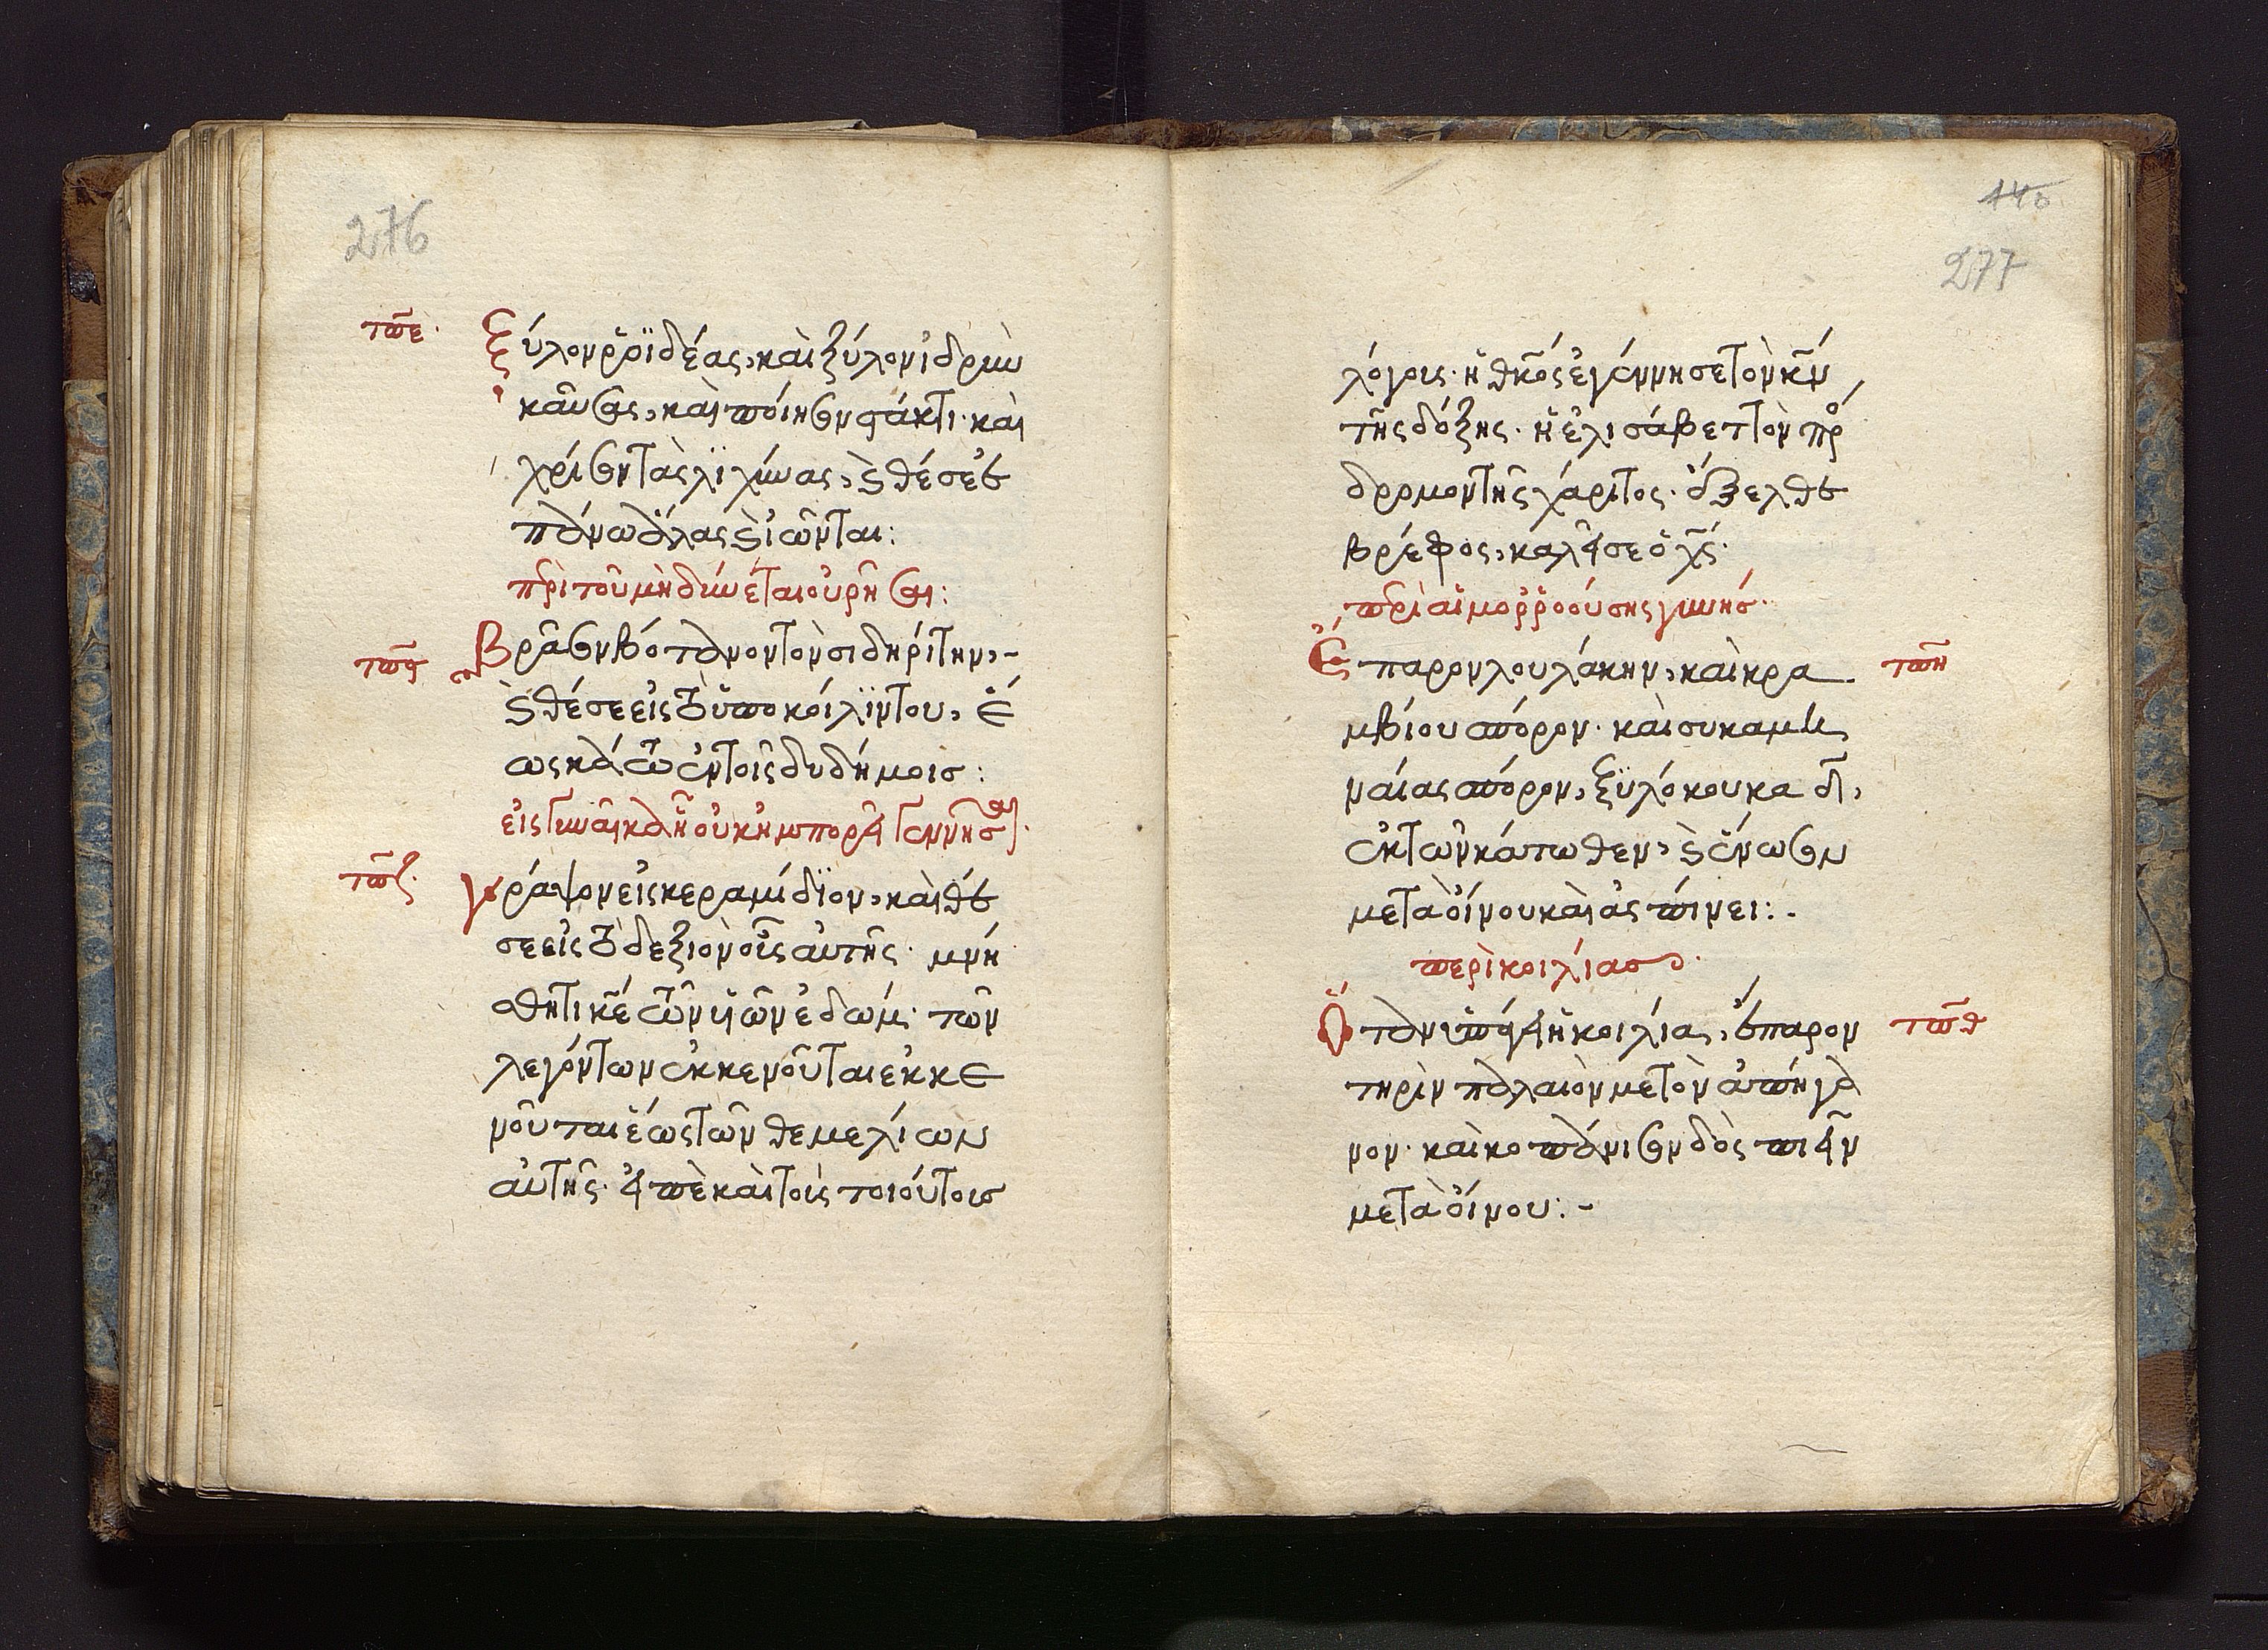 276
τω̅ε·
ξύλον ῥοϊδέας, καὶ ξύλον ἰδρϊὰ
καῦσας, καὶ ποίησον στάκτι· καὶ
χρίσον τὰς λϊχῆνας, καὶ θέσε
πάνω ἅλας καὶ ἰῶνται:
πρὶ τοῦ μὴ δύνεται οὐρῆσαι:
τω̅ϛ
Βράσον βότανον τὸν σιδηρίτην,-
καὶ θέσε εἰς τὸ ὑποκοίλϊν του, ἕ
ως καλὰ ἐν τοῖς διδήμοις:
εἰς γυναῖκα ἢ οὐκ ἠμπορεῖ γεννῆσαι·
τω̅ζ·
γράψον εἰς κεραμίδϊον, καὶ θέ
σε εἰς τὸ δεξιὸν οὖς αὐτῆς· μνή
σθητι κε̅ τῶν υἱῶν ἐδώμ· τῶν
λεγόντων ἐκκενοῦται ἐκκε
νοῦται ἕως τῶν θεμελίων
αὐτῆς· εἰπὲ καὶ τοὶς τοιούτοις
146
277
λόγοις· ἡ θκ̅ος ἐγέννησε τὸν κ̅ν
τῆς δόξης· ἡ ἐλισάβετ τὸν πρό
δρομον τῆς χάριτος· ἔξελθε
βρέφος, καλεῖ σε ὁ χ̅ς·
πρὶ αἱμορῥοούσης γυνῆς·
Ἔπαρον λουλάκην, καὶ κρα
τω̅η
μβίου σπόρον· καὶ συκαμι
ναίας σπόρον, ξϋλόκουκα
ἐκ τῶν κάτωθεν, καὶ ἕνωσον
μετὰ οἴνου καὶ ἀς πίνει:.
περὶ κοιλίας·
Ὅταν ὑπάγει ἡ κοιλία, ἔπαρον
τω̅θ
τηρὶν παλαιὸν με τὸν ἀπήγα
νον· καὶ κοπάνισον δὸς πιεῖν
μετὰ οἴνου:-